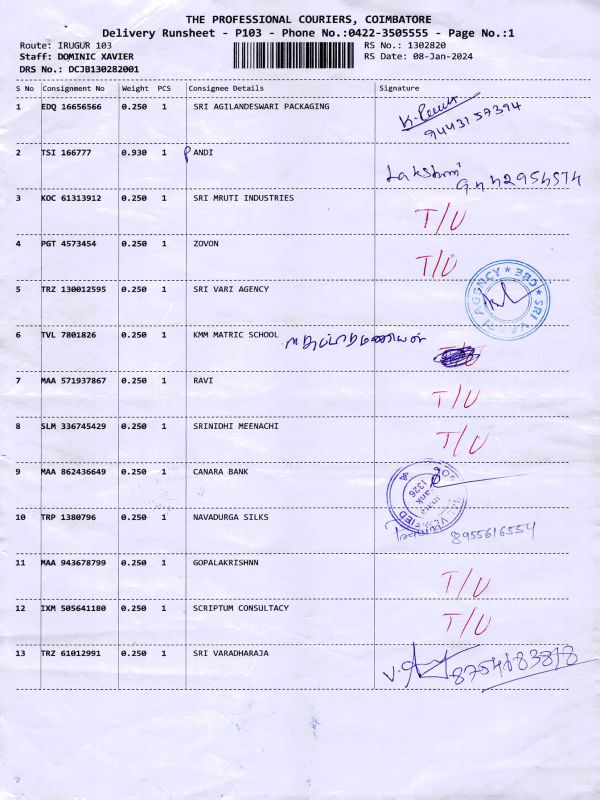 THE PROFESSIONAL COURIERS, COIMBATORE
Delivery Runsheet - P103 - Phone No.:0422-3505555 - Page No.:1
Route: IRUGUR 103 RS No.: 1302820
Staff: DOMINIC XAVIER RS Date: 08-Jan-2024
DRS No.: DCJB130282001
S No Consignment No Weight PCS Consignee Details Signature
1 EDQ 16656566 0.250 1 SRI AGILANDESWARI PACKAGING
9443157394
2 TSI 166777 0.930 1 PANDI
Lakshmi
3 KOC 61313912 0.250 1 SRI MRUTI INDUSTRIES T/U
4 PGT 4573454 0.250 1 ZOVON T/U
5 TRZ 130012595 0.250 1 SRI VARI AGENCY
SRI VARI AGENCY * CBE *
6 TVL 7801826 0.250 1 KMM MATRIC SCHOOL
7 MAA 571937867 0.250 1 RAVI T/U
8 SLM 336745429 0.250 1 SRINIDHI MEENACHI T/U
9 MAA 862436649 0.250 1 CANARA BANK
10 TRP 1380796 0.250 1 NAVADURGA SILKS
8955616554
11 MAA 943678799 0.250 1 GOPALAKRISHNN T/U
12 IXM 505641180 0.250 1 SCRIPTUM CONSULTACY T/U
13 TRZ 61012991 0.250 1 SRI VARADHARAJA